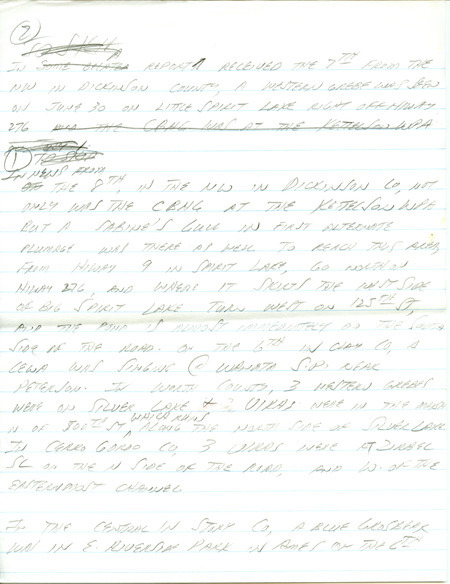 ②
IN REPORT RECEIVED THE 7TH FROM THE
NW IN DICKINSON COUNTY, A WESTERN GREBE WAS SEEN
ON JUNE 30 ON LITTLE SPIRIT LAKE RIGHT OFF HIWAY
276 AND THE CBNG WAS AT THE KETTLESON WPA
①
IN NEWS FROM
THE 8TH, IN THE NW IN DICKINSON CO, NOT
ONLY WAS THE CBNG AT THE KETTLESON WPA
BUT A SABINE'S GULL IN FIRST ALTERNATE
PLUMAGE WAS THERE AS WELL TO REACH THIS AREA,
FROM HIWAY 9 IN SPIRIT LAKE, GO NORTH ON
HIWAY 276, AND WHERE IT SKIRTS THE WEST SIDE
OF BIG SPIRIT LAKE TURN WEST ON 125TH ST,
AND THE POND IS ALMOST IMMEDIATELY ON THE SOUTH
SIDE OF THE ROAD. ON THE 6TH IN CLAY CO, A
CEWA WAS SINGING @ WANATA S.P. NEAR
PETERSON. IN WORTH COUNTY, 3 WESTERN GREBES
WERE ON SILVER LAKE + 2 VIRAS WERE IN THE MARSH
N OF 500TH ST, WHICH RUNS ALONG THE NORTH SIDE OF SILVER LAKE
IN CERRO GORDO CO, 3 WERE AT ZIRBEL
SL ON THE N SIDE OF THE ROAD, AND W. OF THE
EASTERNMOST CHANNEL
IN THE CENTRAL IN STORY CO, A BLUE GROSBEAK
WAS IN E. RIVERSIDE PARK IN AMES ON THE 6TH